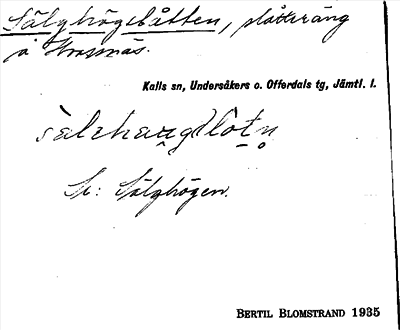 Sälghögslåtten, slåtteräng
å Krosnäs.
Kalls sn, Undersåkers o. Offerdals tg, Jämtl. l.
Sälghögen.
BERTIL BLOMSTRAND 1935